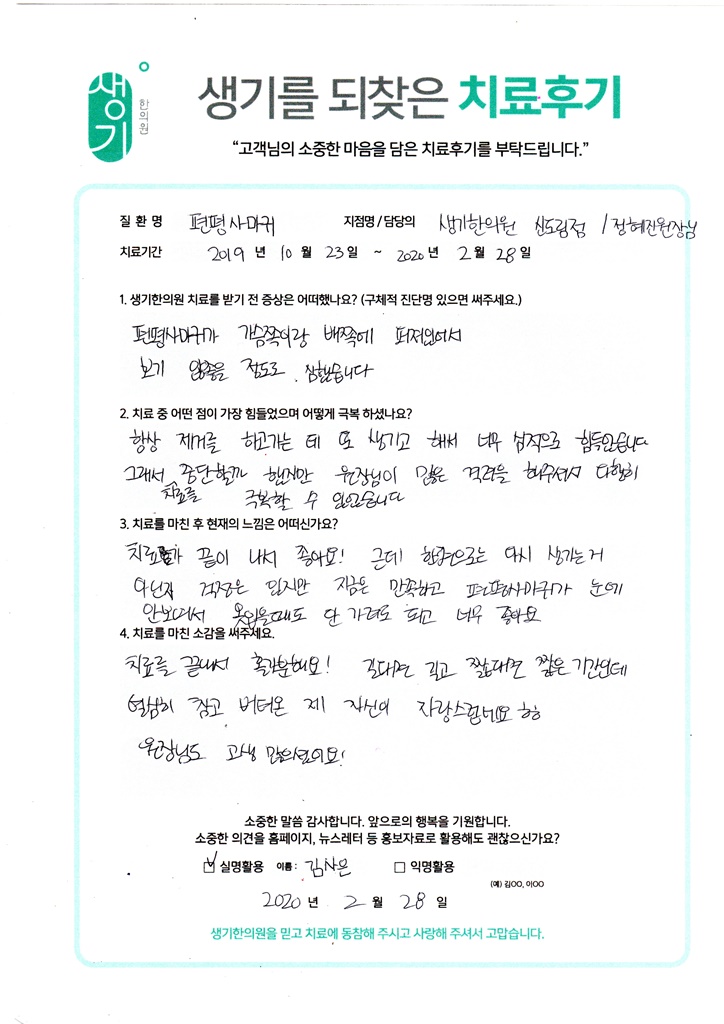 생기
한의원
생기를 되찾은 치료후기
“고객님의 소중한 마음을 담은 치료후기를 부탁드립니다.”
질 환 명 편평사마귀 지점명 / 담당의 생기한의원 신도림점 / 정혜진원장님
치료기간 2019 년 10 월 23 일 ~ 2020 년 2 월 28 일
1. 생기한의원 치료를 받기 전 증상은 어떠했나요? (구체적 진단명 있으면 써주세요.)
편평사마귀가 가슴쪽이랑 배쪽에 퍼져있어서
보기 않좋을 정도로 심했습니다
2. 치료 중 어떤 점이 가장 힘들었으며 어떻게 극복 하셨나요?
항상 제거를 하고가는 데 또 생기고 해서 너무 심적으로 힘득었습니다
그래서 중단할까 했지만 원장님이 많은 격려을 해주셔서 다행히
치료를 극복할 수 있었습니다
3. 치료를 마친 후 현재의 느낌은 어떠신가요?
치료가 끝이 나서 좋아요! 근데 한편으로는 다시 생기는거
아닌지 걱정은 있지만 지금은 만족하고 편평사마귀가 눈에
안보여서 옷입을때도 안 가려도 되고 너무 좋아요
4. 치료를 마친 소감을 써주세요.
치료를 끝내서 홀가분해요! 길다면 길고 짧다면 짧은 기간인데
열심히 참고 버텨온 제 자신이 자랑스럽네요 ㅎㅎ
원장님도 고생 많으셨어요!
소중한 말씀 감사합니다. 앞으로의 행복을 기원합니다.
소중한 의견을 홈페이지, 뉴스레터 등 홍보자료로 활용해도 괜찮으신가요?
실명활용 이름 : 김사은 익명활용
(예) 김OO, 이OO
2020 년 2 월 28 일
생기한의원을 믿고 치료에 동참해 주시고 사랑해 주셔서 고맙습니다.